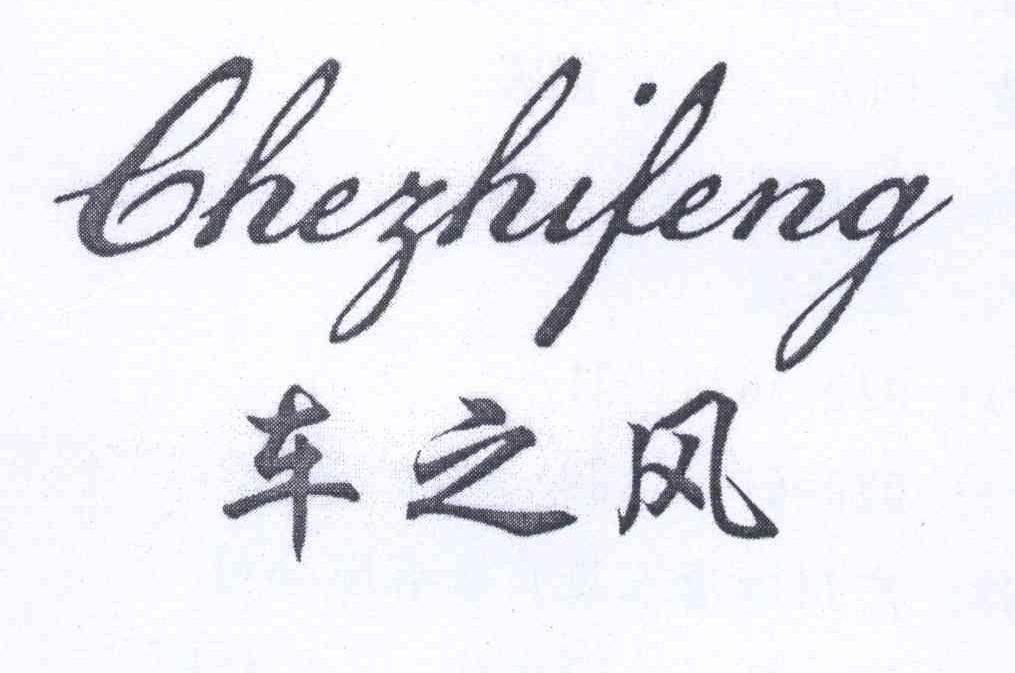 Chezhifeng
车之风